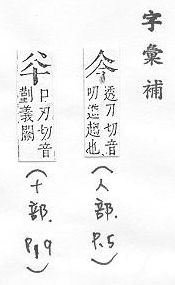 字彙補
透刀切音
叨進趨也
(人部.
P.5)
口刀切音
義闕
(十部.
P.19)